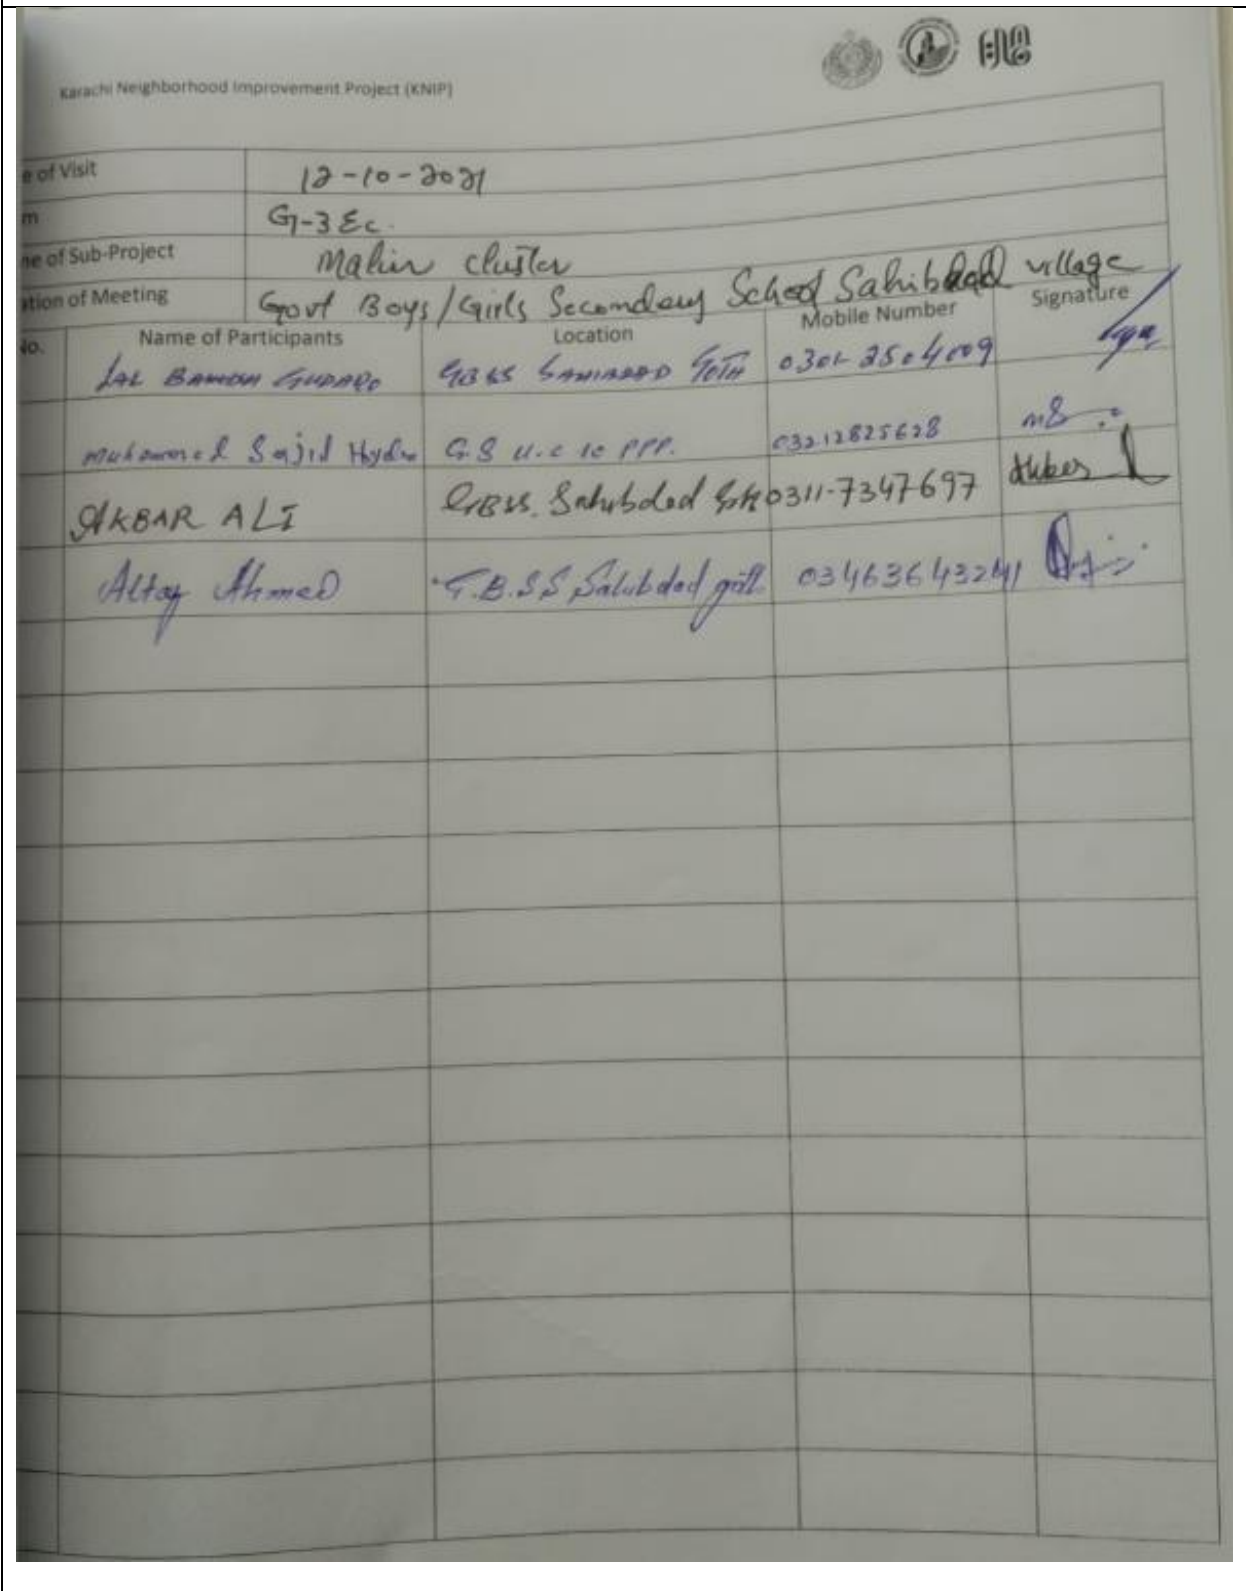 Karachi Neighborhood Improvement Project (KNIP)
e of Visit 12-10-2021
m G-3 Ec.
ne of Sub-Project Malir cluster
ation of Meeting Govt Boys/Girls Secondary School Sahibdad village
No. Name of Participants Location Mobile Number Signature
LAL GBSS SAHIBDAD GOTH 0301-2504009
Muhammad Sajid Hyder G.S U.C 10 PPP. 03212825628
AKBAR ALI GBSS. Sahibdad Goth 0311-7347697 Akber
Altaf Ahmed G.B.S.S Sahibdad goth. 03463643241